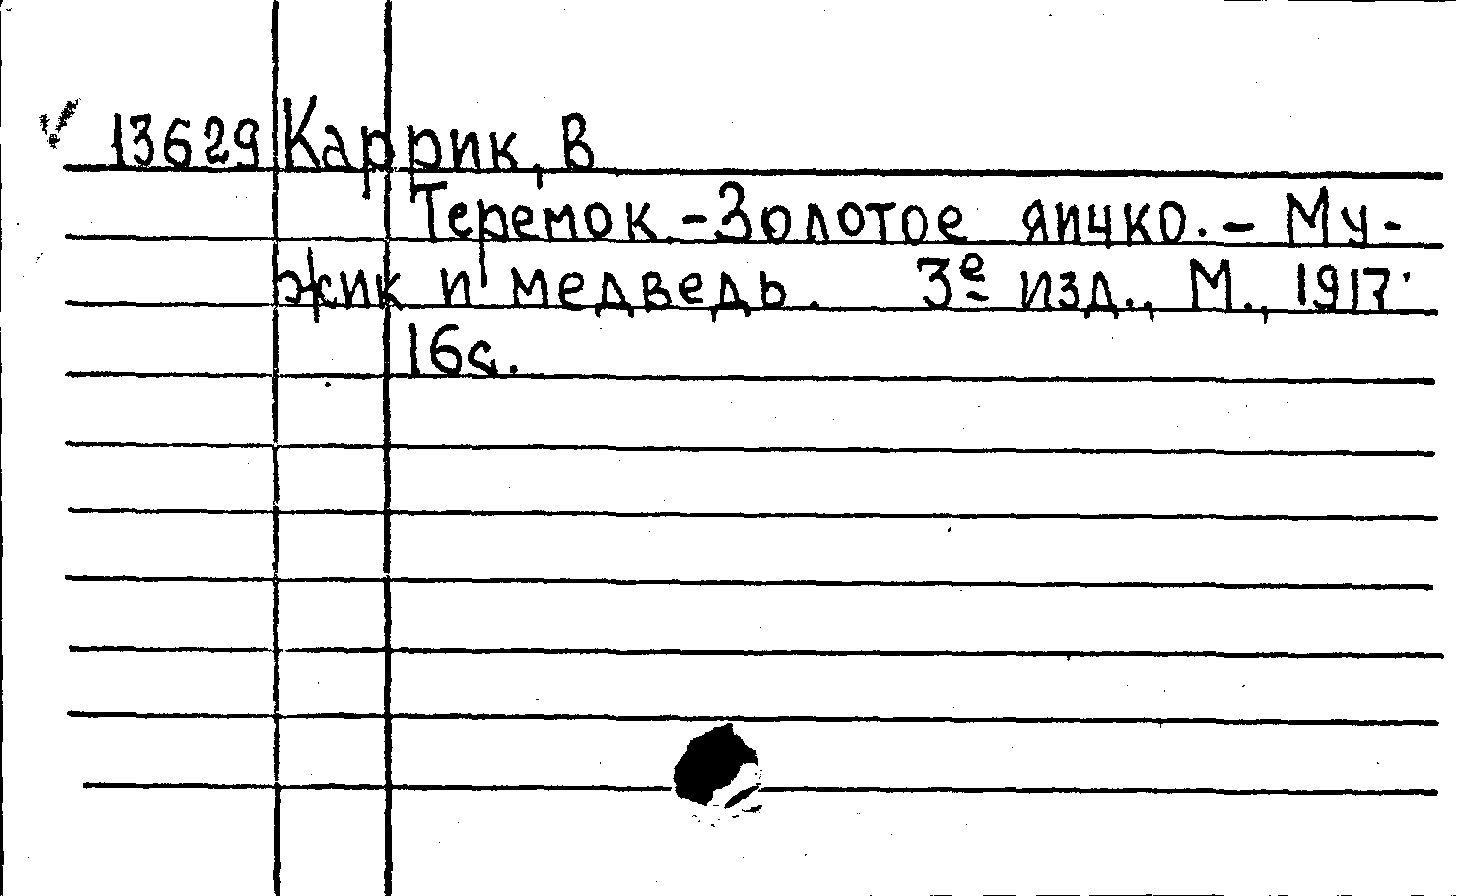 ✓ 13629 Каррик, В
Теремок.-Золотое яичко.- Му-
жик и медведь. 3е изд., М., 1917.
16с.